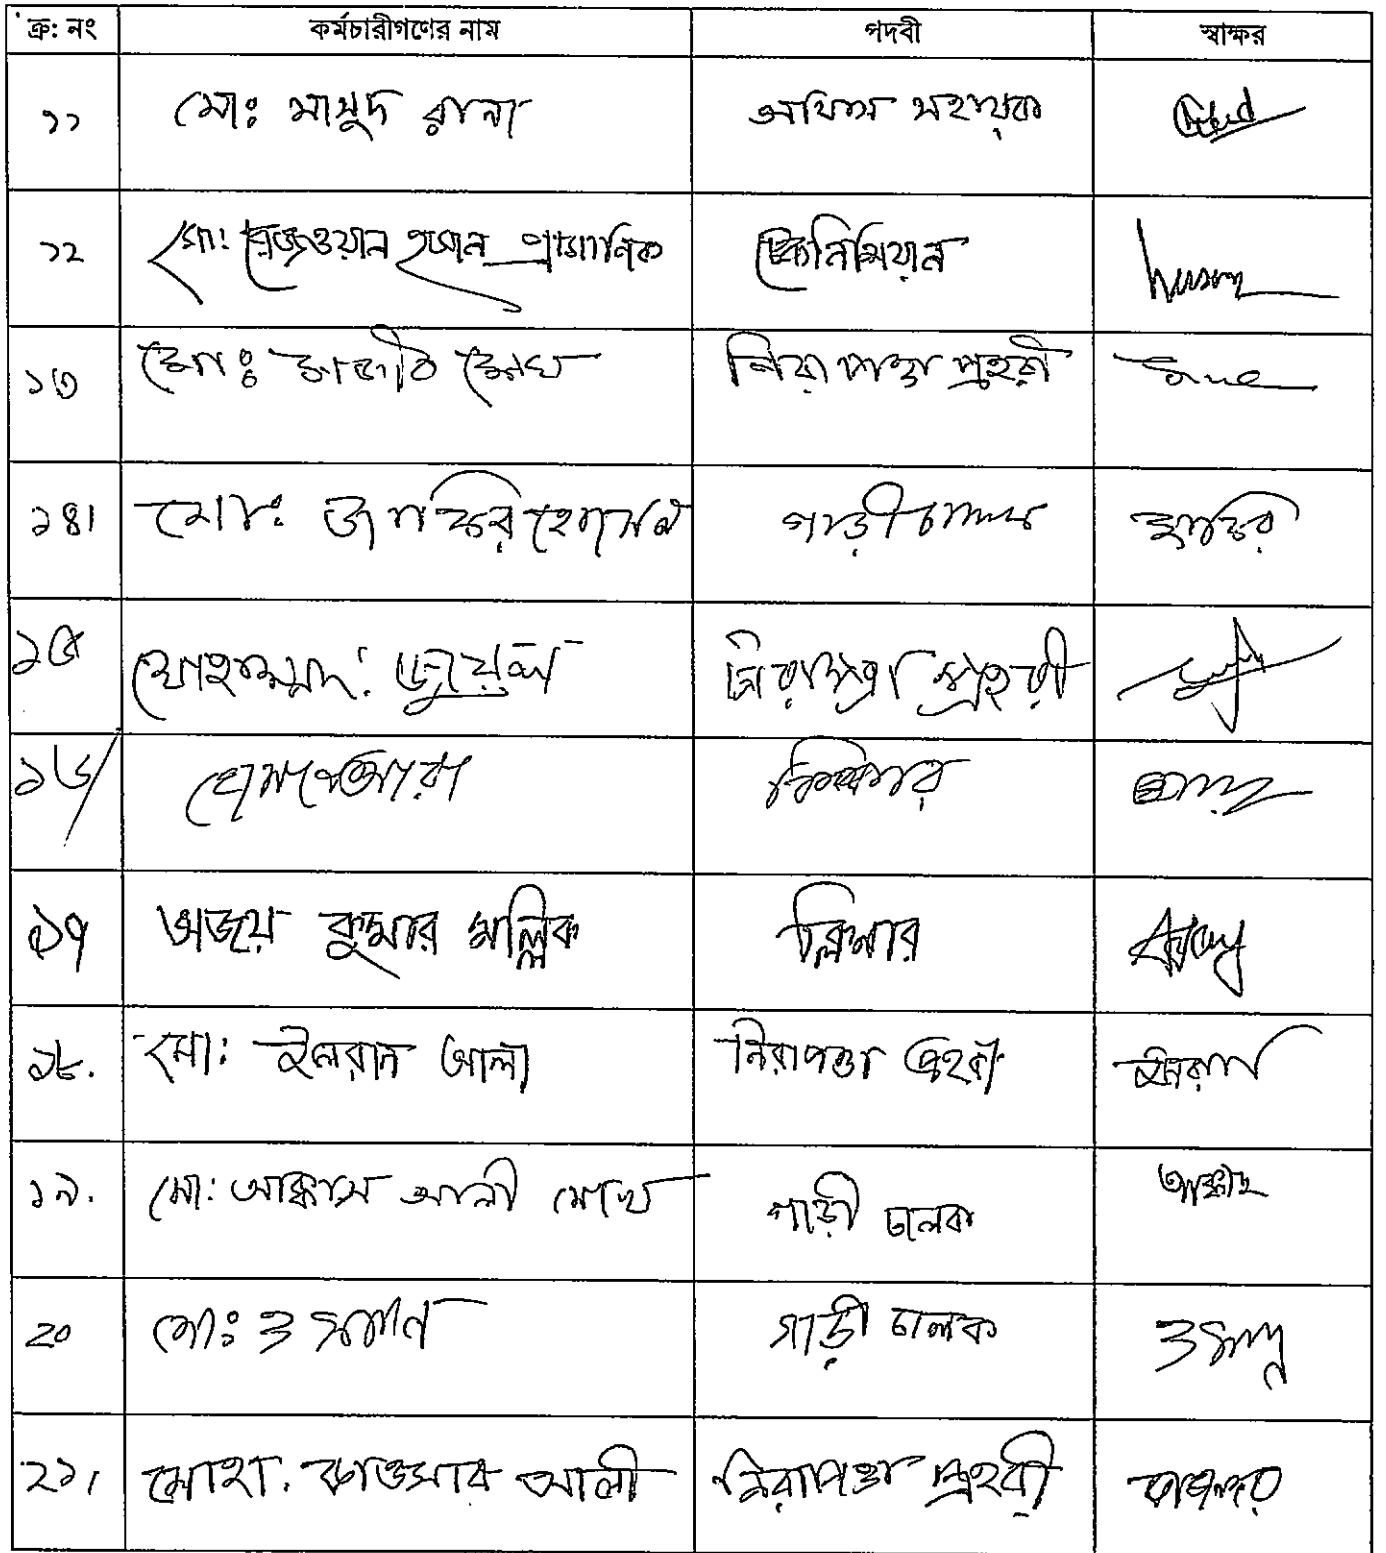 ক্র: নং কর্মচারীগণের নাম পদবী স্বাক্ষর
১১ মোঃ মাসুদ রানা অফিস সহায়ক
১২ মো: রেজওয়ান হুসান প্রামানিক টেকনিশিয়ান
১৩ মোঃ সেখ নিরাপত্তা প্রহরী
১৪। মোঃ জাকির হোসেন গাড়ী চালক জাকির
১৫ মোহাম্মদ. জুয়েল নিরাপত্তা প্রহরী
১৬/ হোসনেআরা ক্লিনার
১৭ অজয় কুমার মল্লিক ক্লিনার Ajoy
১৮. মো: ইমরান আলী নিরাপত্তা প্রহরী ইমরান
১৯. মো: আক্কাস আলী সেখ গাড়ী চালক আক্কাছ
২০ মোঃ ওসমান গাড়ী চালক ওসমান
২১। মোহা. কাওসার আলী নিরাপত্তা প্রহরী কাওসার